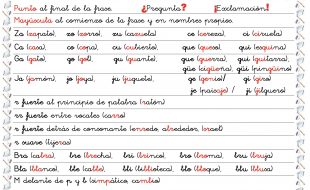 Punto al final de la frase. ¿Pregunta? ¡Exclamación!
Mayúscula al comienzo de la frase y en nombres propios.
Za (zapato), zo (zorro), zu (azuela) ce (cereza), ci (ciruela)
Ca (casa), co (copa), cu (cubierto), que (queso), qui (esquina)
Ga (gato), go (gol), gu (guante), gue (guerra), gui (guitarra),
güe (cigüeña), güi (pingüino)
Ja (jamón), jo (joya), ju (juguete), ge (genio) / gi (giro)
je (paisaje) / ji (jilguero)
r fuerte al principio de palabra (ratón)
rr fuerte entre vocales (carro)
r fuerte detrás de consonante (enredo, alrededor, Israel)
r suave (tijeras)
Bra (cabra), bre (brecha), bri (brico), bro (broma), bru (bruja)
Bla (tabla), ble (cable), bli (biblioteca), blo (bloque), blu (blusa)
M delante de p y b (simpático, cambio)